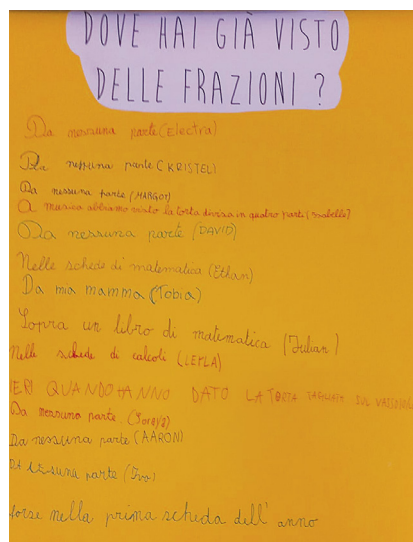 DOVE HAI GIÀ VISTO
DELLE FRAZIONI ?
Da nessuna parte (Electra)
Da nessuna parte (KRISTEL)
Da nessuna parte (MARGOT)
A musica abbiamo visto la torta divisa in quattro parti (Isabelle)
Da nessuna parte (DAVID)
Nelle schede di matematica (Ethan)
Da mia mamma (Tobia)
Sopra un libro di matematica (Julian)
Nelle schede di calcoli (LEYLA)
IERI QUANDO HANNO DATO LA TORTA TAGLIATA SUL
Da nessuna parte. (Soraya)
Da nessuna parte (AARON)
DA nessuna parte (Ivo)
forse nella prima scheda dell' anno